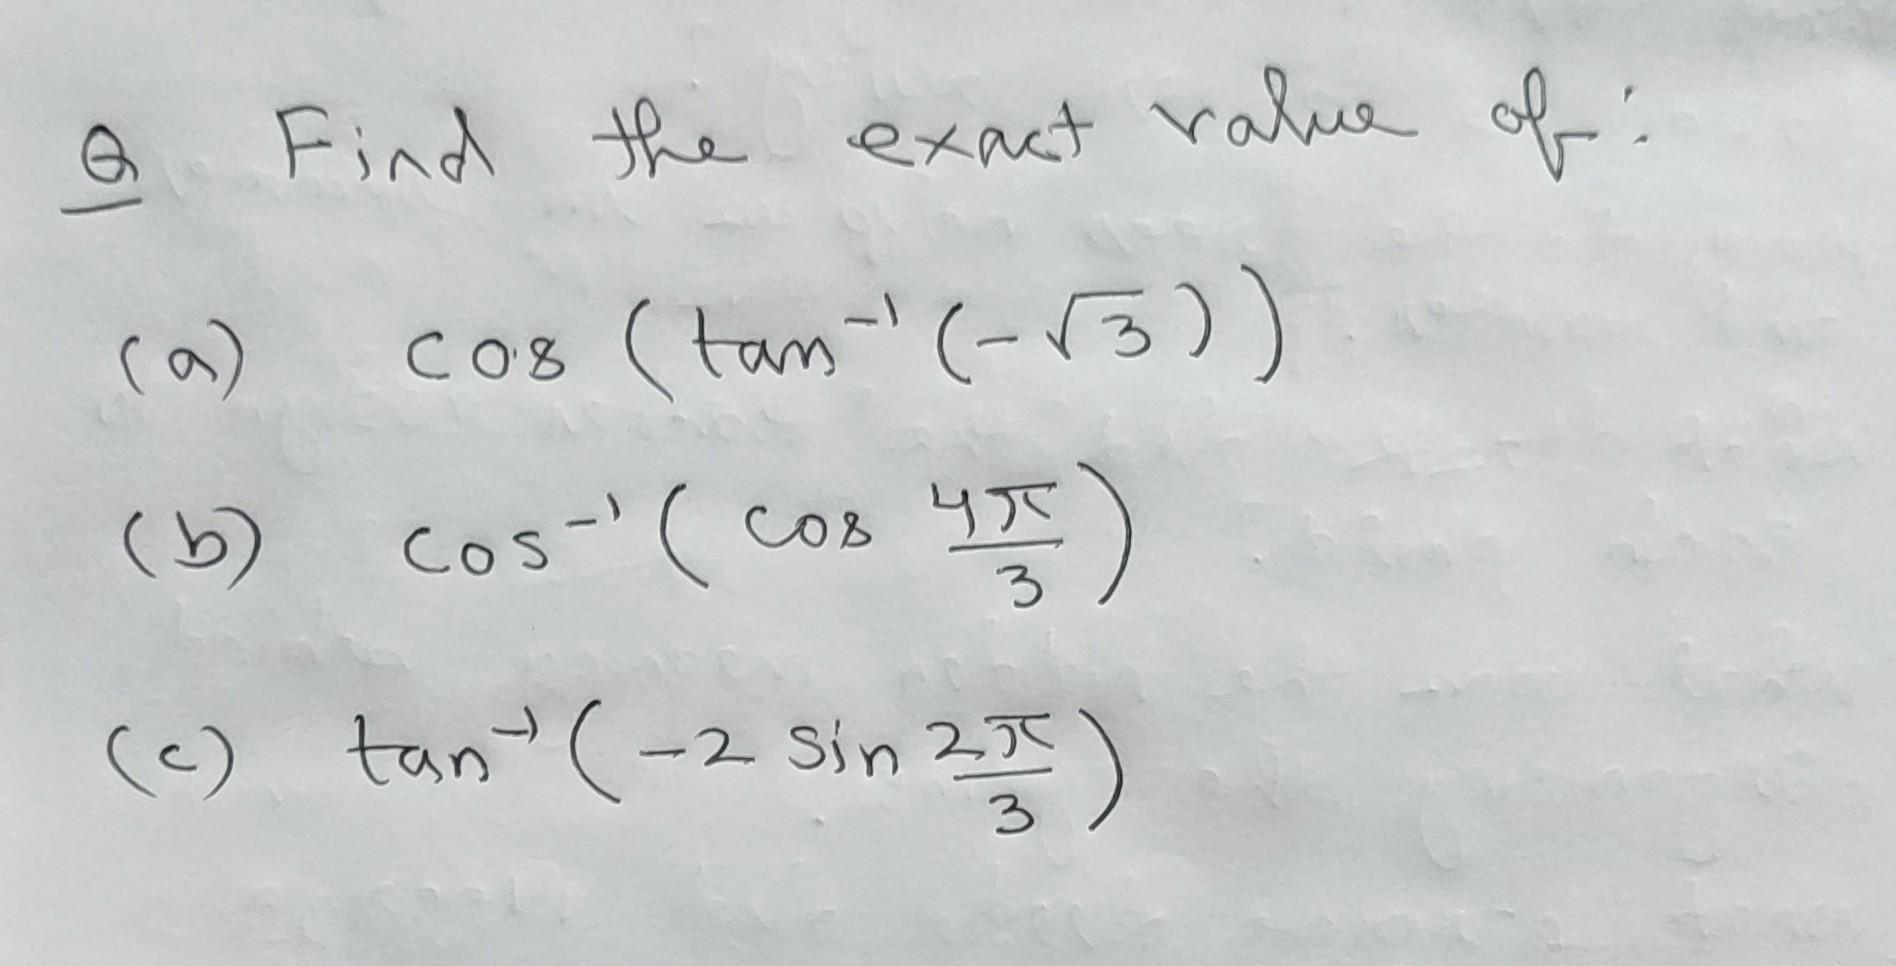 Q Find the exact value of:
(a) cos (tan⁻¹(-√3))
(b) cos⁻¹(cos 4π/3)
(c) tan⁻¹(-2 sin 2π/3)